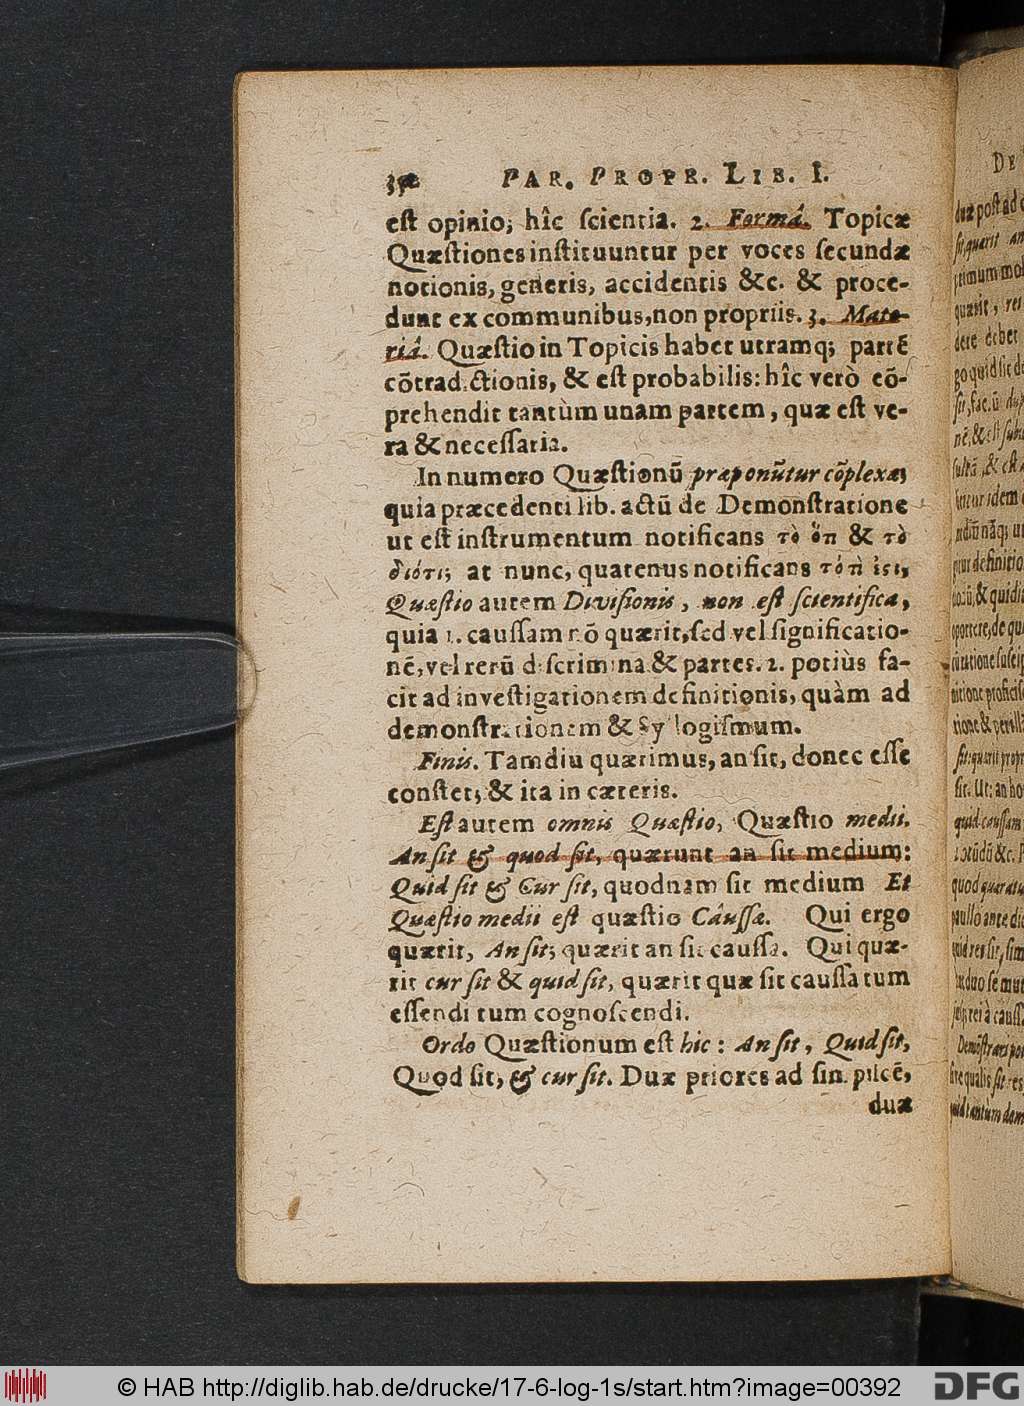 PAR. PROPR. LIB. I.
est opinio; hîc scientia. 2. Formâ. Topicæ
Quæstiones instituuntur per voces secundæ
notionis, generis, accidentis &c. & proce-
dunt ex communibus, non propriis. 3. Mate-
riâ. Quæstio in Topicis habet utramq; partē
cōtradictionis, & est probabilis: hîc verò cō-
prehendit tantùm unam partem, quæ est ve-
ra & necessaria.
In numero Quæstionū præponūtur cōplexæ;
quia præcedenti lib. actū de Demonstratione
ut est instrumentum notificans τὸ ὅτι & τὸ
διότι; at nunc, quatenus notificans τό τί ἐστι,
Quæstio autem Divisionis, non est scientifica,
quia 1. caussam nō quærit, sed vel significatio-
nē, vel rerū discrimina & partes. 2. potiùs fa-
cit ad investigationem definitionis, quàm ad
demonstrationem & syllogismum.
Finis. Tamdiu quærimus, an sit, donec esse
constet; & ita in cæteris.
Est autem omnis Quæstio, Quæstio medii.
An sit & quod sit, quærunt an sit medium:
Quid sit & Cur sit, quodnam sit medium Et
Quæstio medii est quæstio Caussæ. Qui ergo
quærit, An sit; quærit an sit caussa. Qui quæ-
rit cur sit & quid sit, quærit quæ sit caussa tum
essendi tum cognoscendi.
Ordo Quæstionum est hic: An sit, Quid sit,
Quod sit, & cur sit. Duæ priores ad simplicē,
duæ
DE
© HAB http://diglib.hab.de/drucke/17-6-log-1s/start.htm?image=00392
DFG